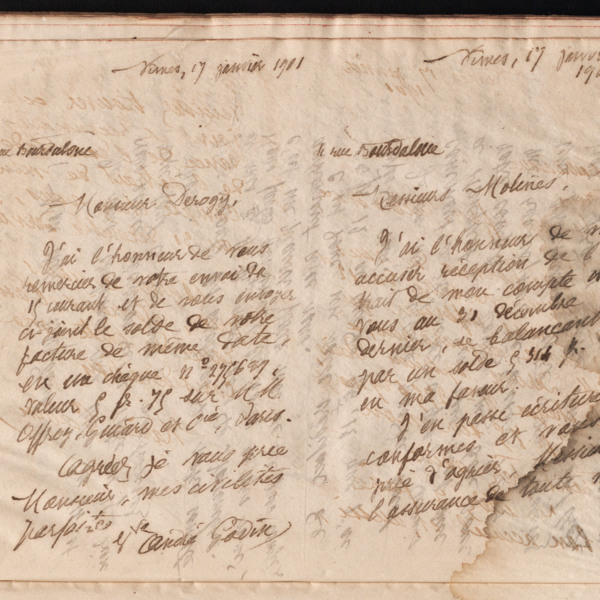 Nimes, 17 janvier 1901
rue Bourdaloue
Monsieur Derogy,
J'ai l'honneur de vous
remercier de votre envoi du
15 courant et de vous envoyer
ci-joint le solde de votre
facture de même date,
en un chèque
valeur fr. 75 sur M.M.
Offroy, Guiard et Cie, Paris.
Agréez je vous prie
Monsieur, mes civilités
parfaites
André Godin
Nimes, 17 janv
190
rue Bourdaloue
Messieurs Molines,
J'ai l'honneur de v
accuser réception de l'
trait de mon compte
vous au 31 décembre
dernier, se balançant
par un solde 314 fr.
en ma faveur.
J'en passe écriture
conformes et vous
prie d'agréer, Messieu
l'assurance de toute